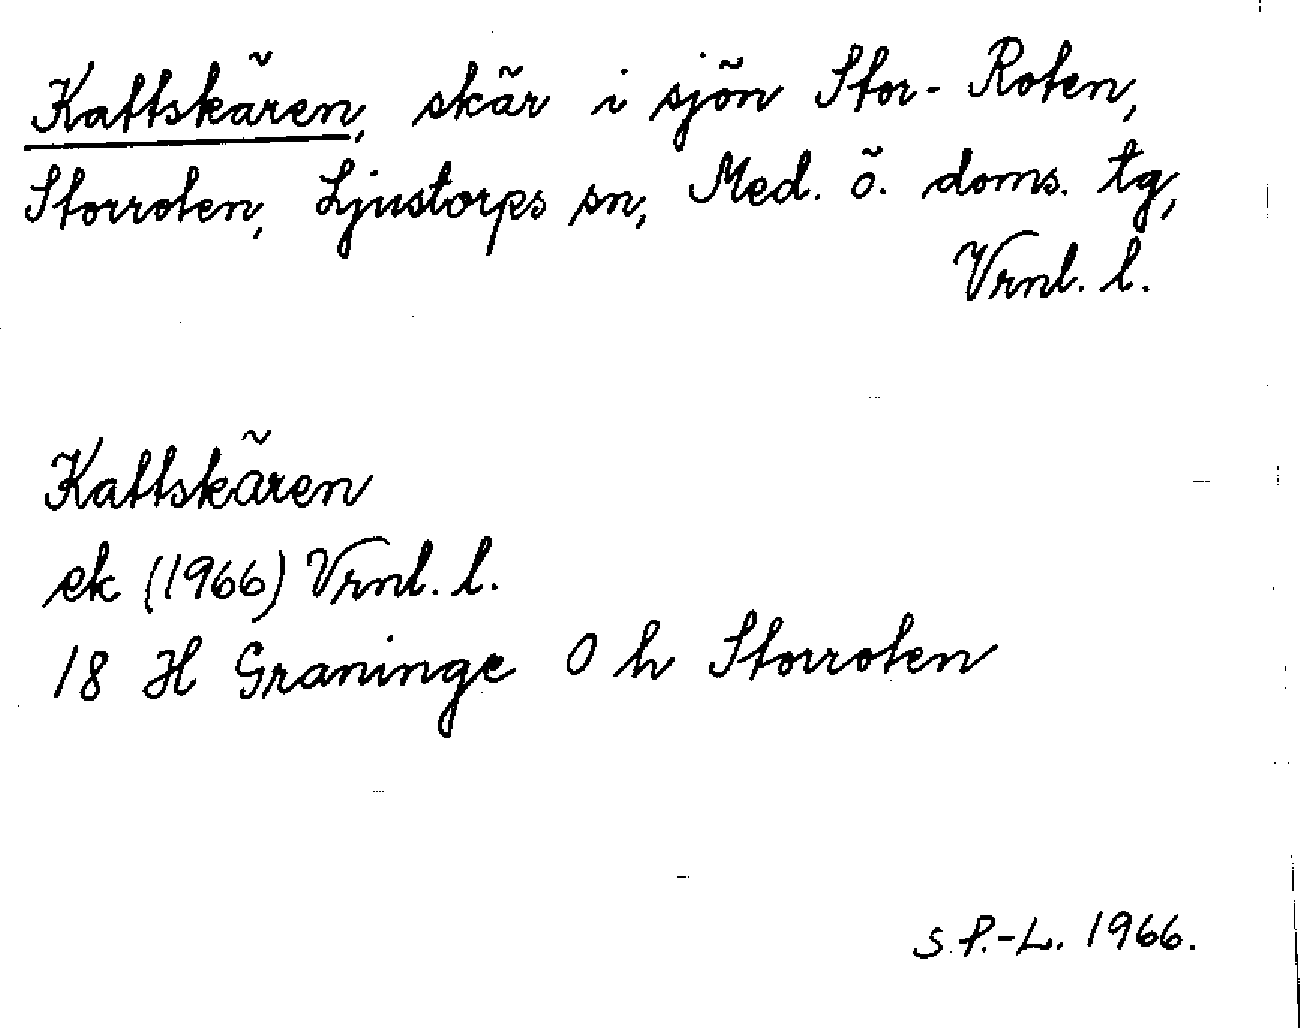 Kattskären, skär i sjön Stor-Roten,
Storroten, Ljustorps sn, Med. ö. doms. tg,
Vrnl. l.
Kattskären
ek (1966) Vrnl. l.
18 H Graninge O h Storroten
S.P.-L. 1966.